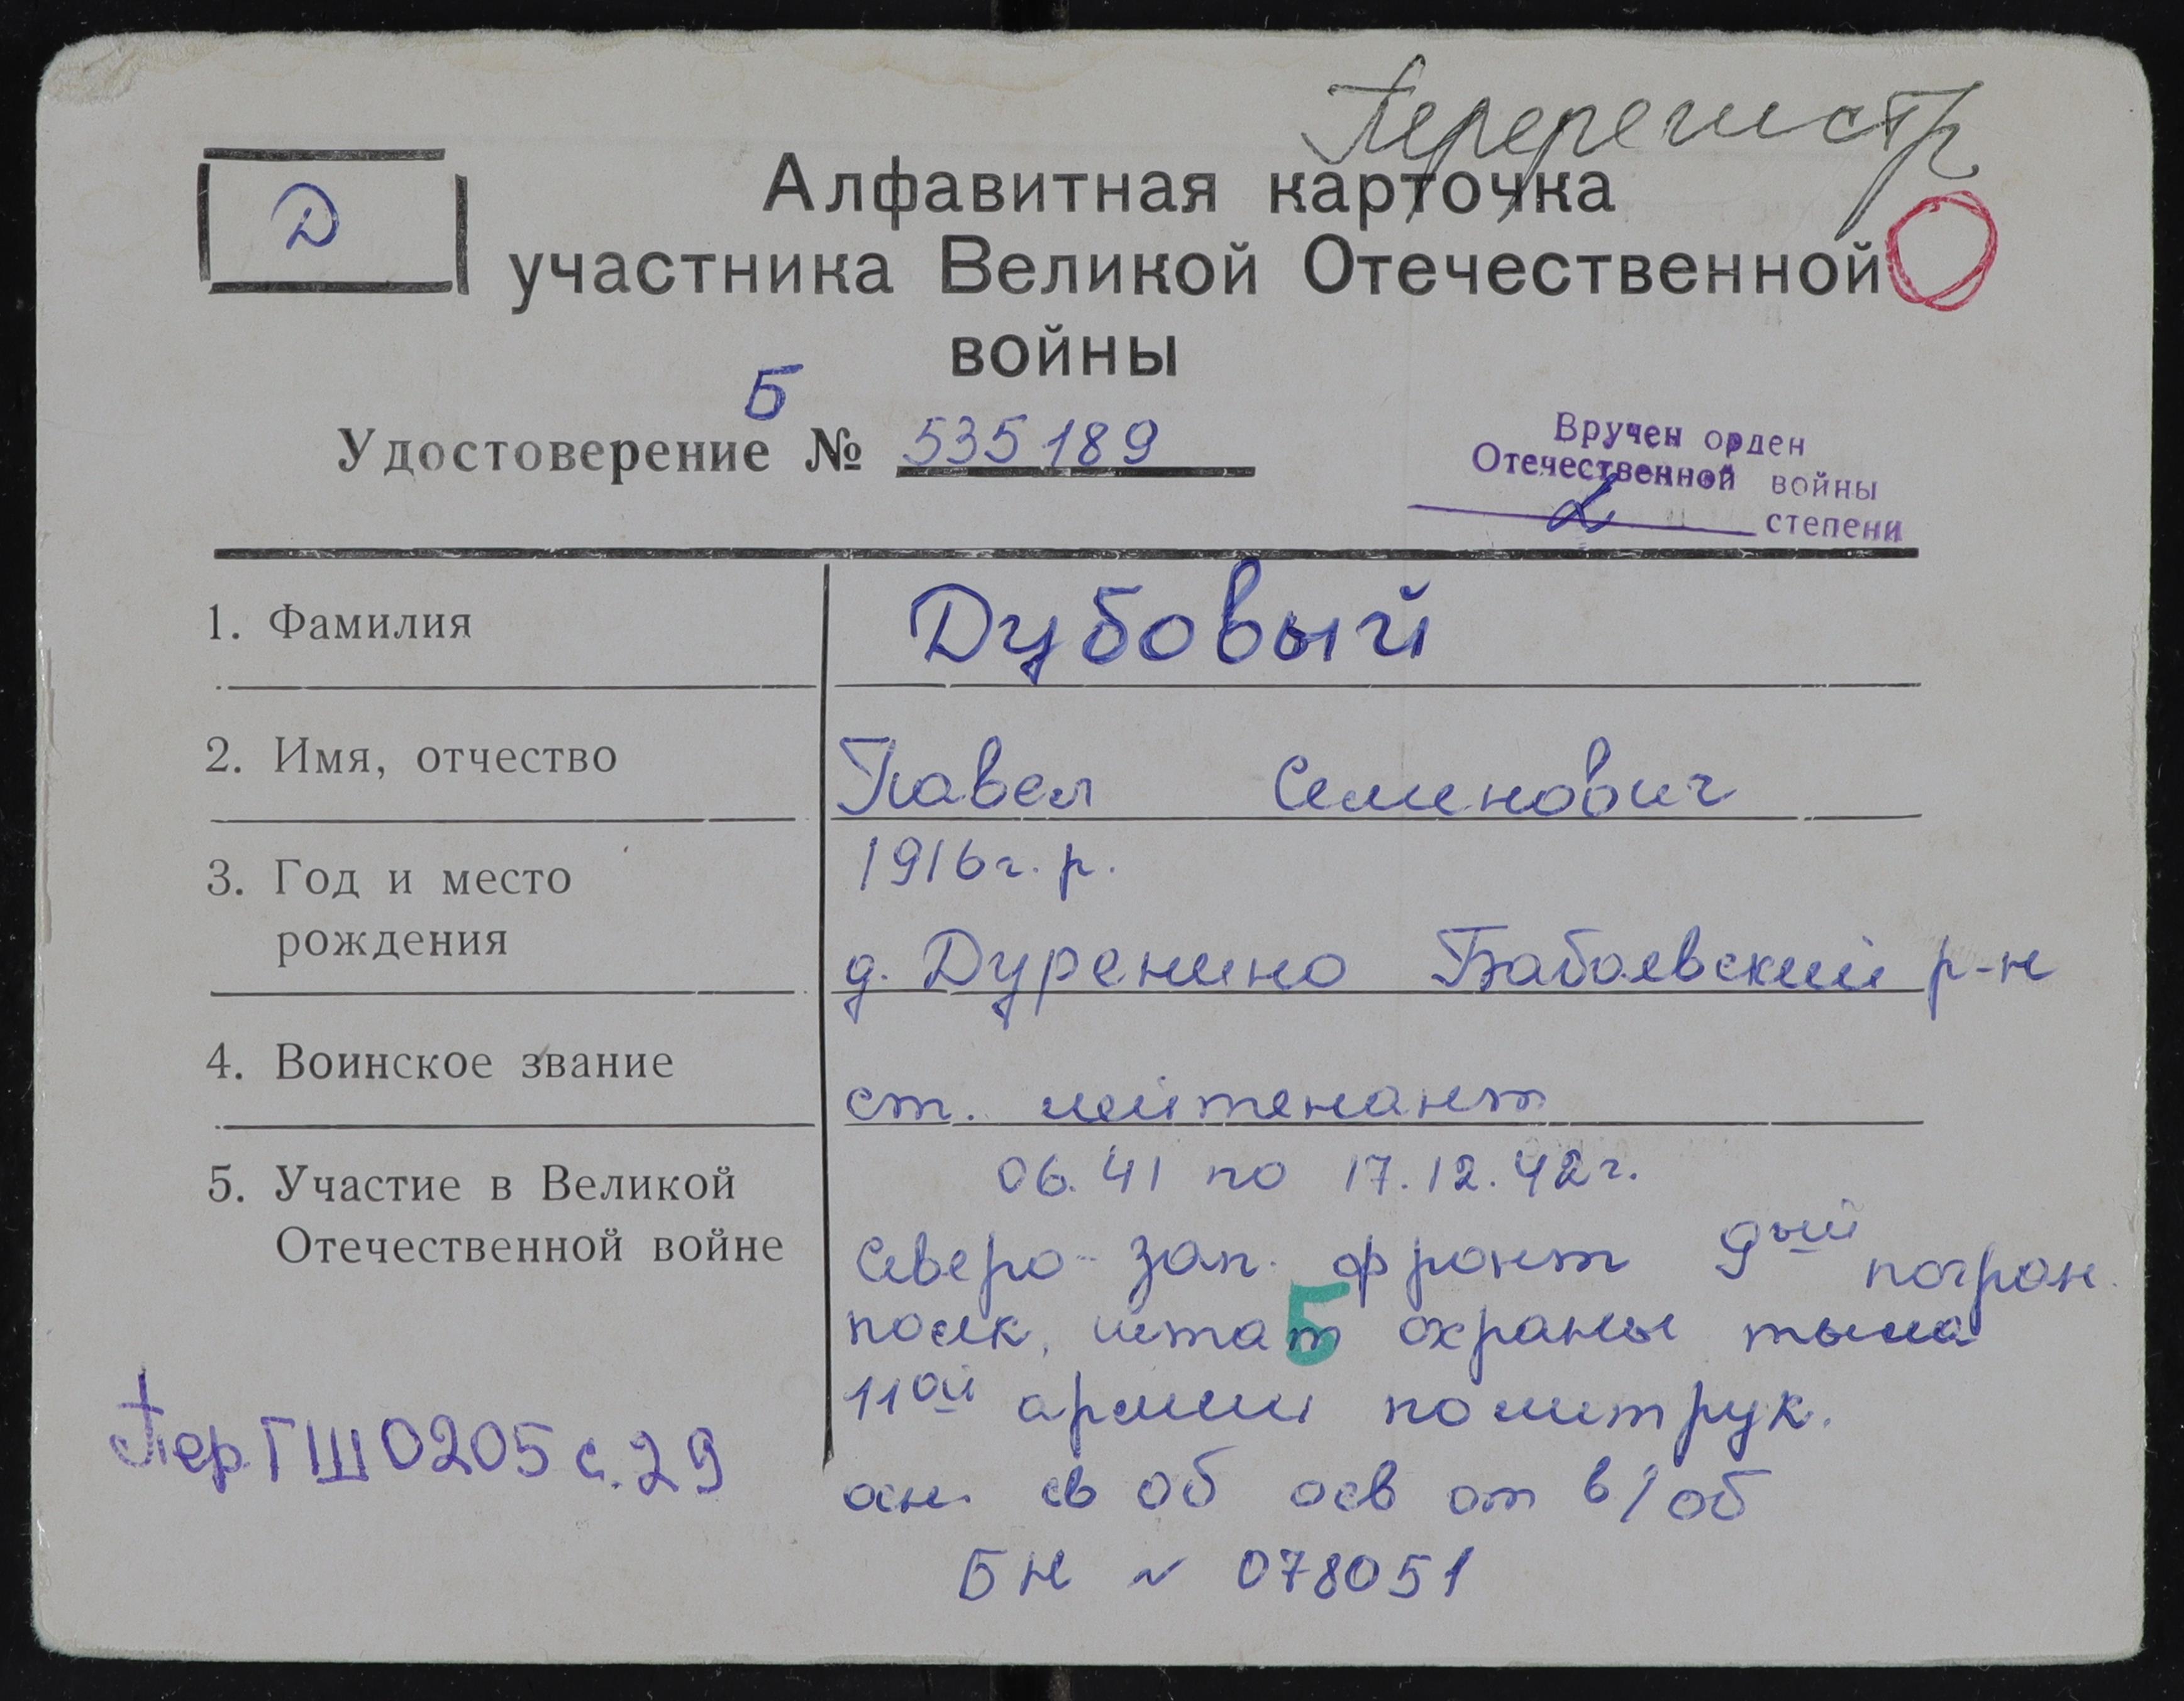 Перерегистр
Д
Алфавитная карточка
участника Великой Отечественной
войны
Б
Удостоверение № 535189
Вручен орден
Отечественной войны
2 степени
1. Фамилия Дубовый
2. Имя, отчество Павел Семенович
3. Год и место 1916 г. р.
рождения д. Дуренино Бабаевский р-н
4. Воинское звание ст. лейтенант
5. Участие в Великой 06.41 по 17.12.42 г.
Отечественной войне Северо-зап. фронт 9ый погран.
полк, штаб охраны тыла
11ой армии политрук.
осн. св об осв от в/об
БН № 078051
Пер ГШ 0205 с. 29